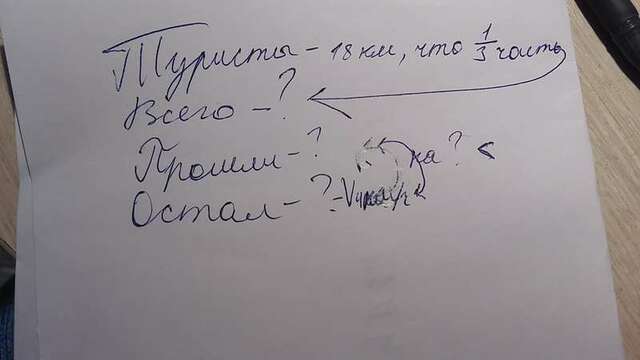 Туристы - 18 км, что 1/3 часть
Всего - ?
Прошли - ? на ? <
Остал - ? -